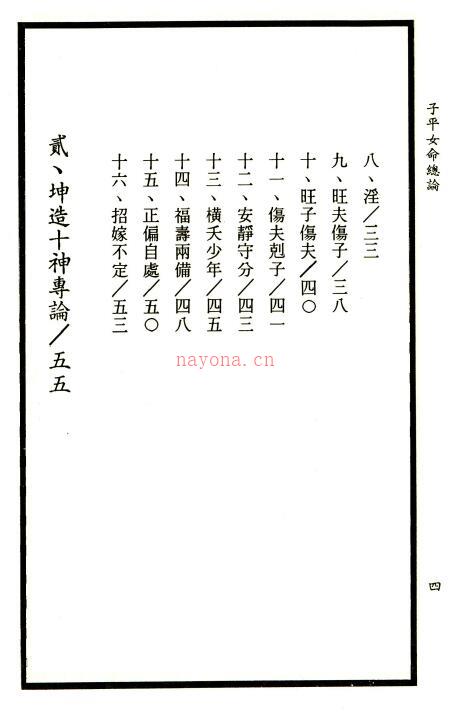 子平女命總論
八、淫／三三
九、旺夫傷子／三八
十、旺子傷夫／四〇
十一、傷夫剋子／四一
十二、安靜守分／四三
十三、橫夭少年／四五
十四、福壽兩備／四八
十五、正偏自處／五〇
十六、招嫁不定／五三
貳、坤造十神專論／五五
四
nayona.cn